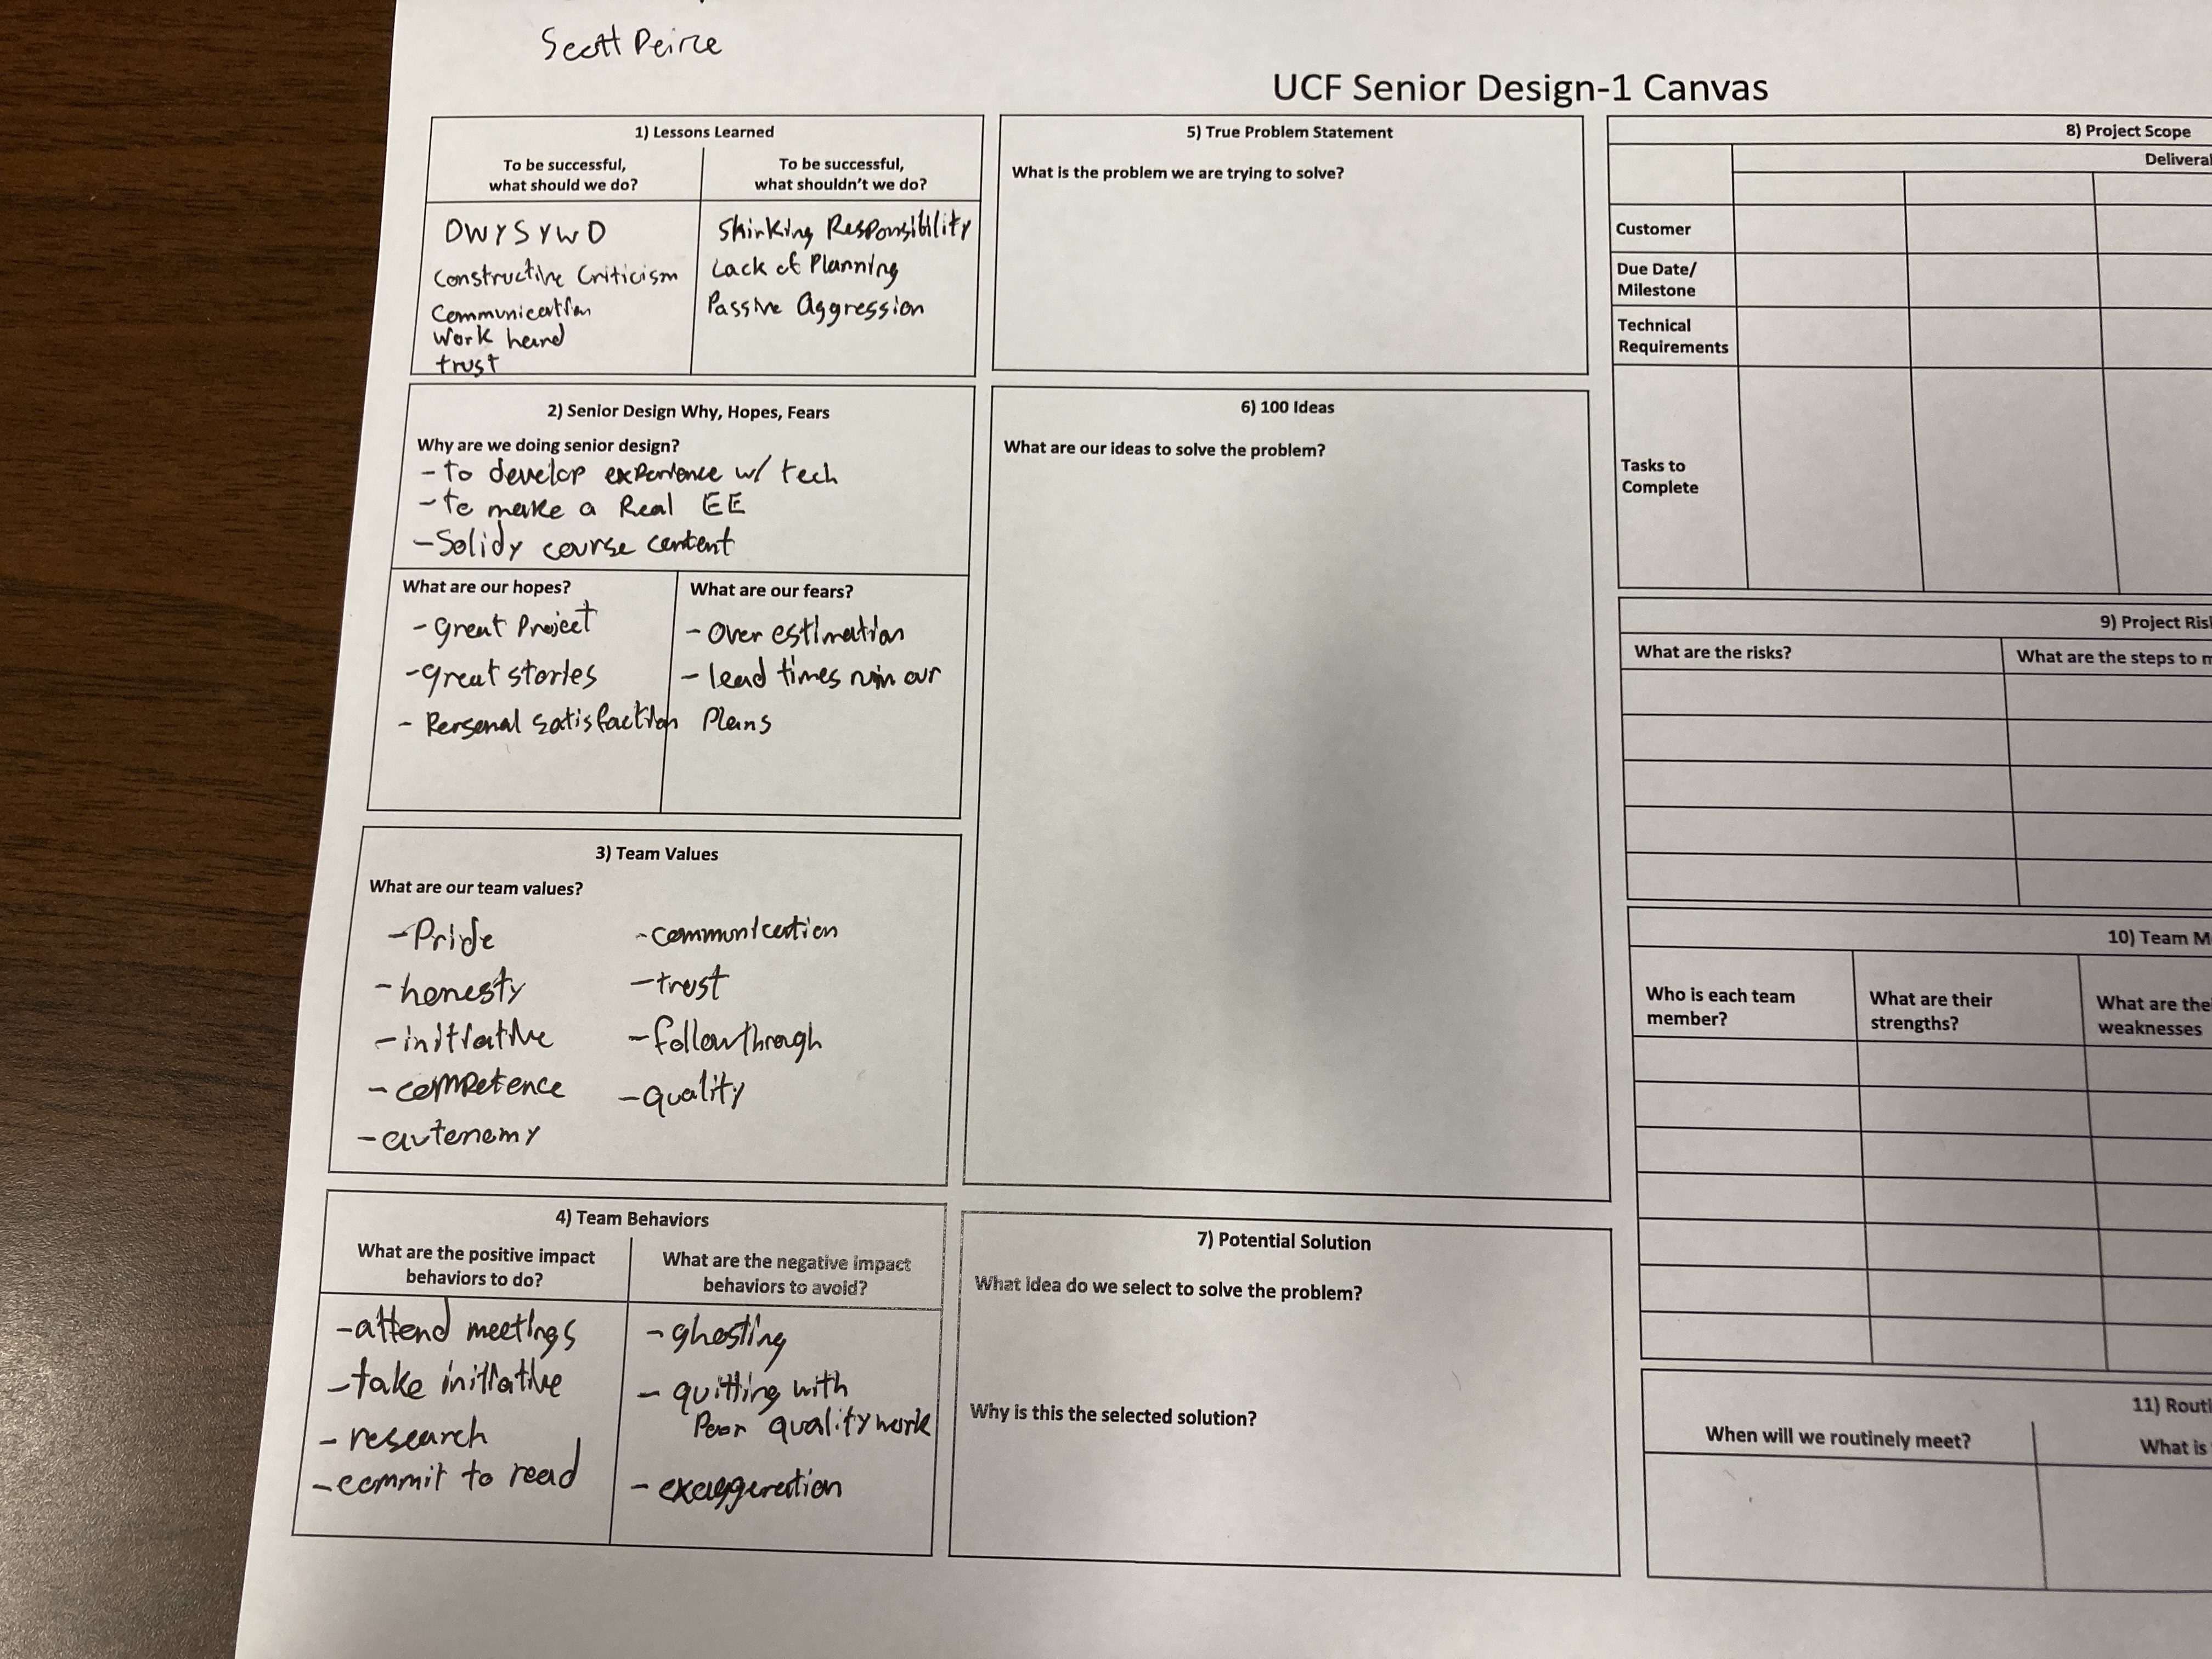 Scott Peirce
UCF Senior Design-1 Canvas
1) Lessons Learned
To be successful,
what should we do?
To be successful,
what shouldn't we do?
DWYSYWD
Constructive Criticism
Communication
Work hard
trust
Shirking Responsibility
Lack of Planning
Passive Aggression
2) Senior Design Why, Hopes, Fears
Why are we doing senior design?
- to develop experience w/ tech
- to make a Real EE
- Solidy course content
What are our hopes?
- great Project
- great stories
- Personal satisfaction
What are our fears?
- Over estimation
- lead times ruin our
Plans
3) Team Values
What are our team values?
- Pride
- honesty
- initiative
- competence
- autonomy
- communication
- trust
- followthrough
- quality
4) Team Behaviors
What are the positive impact
behaviors to do?
What are the negative impact
behaviors to avoid?
- attend meetings
- take initiative
- research
- commit to read
- ghosting
- quitting with
Poor quality work
- exaggeration
5) True Problem Statement
What is the problem we are trying to solve?
6) 100 Ideas
What are our ideas to solve the problem?
7) Potential Solution
What idea do we select to solve the problem?
Why is this the selected solution?
8) Project Scope
Customer
Due Date/
Milestone
Technical
Requirements
Tasks to
Complete
9) Project
What are the risks?
What are the steps to
10) Team
Who is each team
member?
What are their
strengths?
What are
weaknesses
11)
When will we routinely meet?
What is